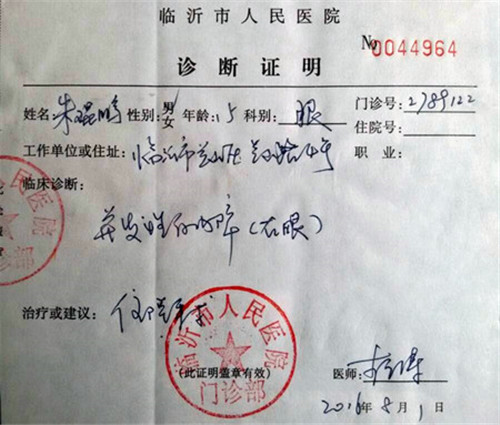 临沂市人民医院
№0044964
诊断证明
姓名:朱琨鹏 性别:男/女 年龄:15 科别:眼 门诊号:2789122
住院号:
工作单位或住址:临沂市兰山区 职业:
临床诊断:
并发性白内障(右眼)
治疗或建议:住院手术
临沂市人民医院
(此证明盖章有效)
门诊部
医师:
2016年8月1日